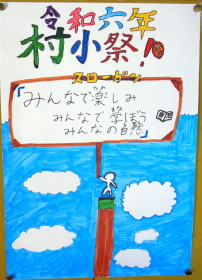 令和六年
村小祭!
スローガン
「みんなで楽しみ
みんなで学ぼう
みんなの自然」